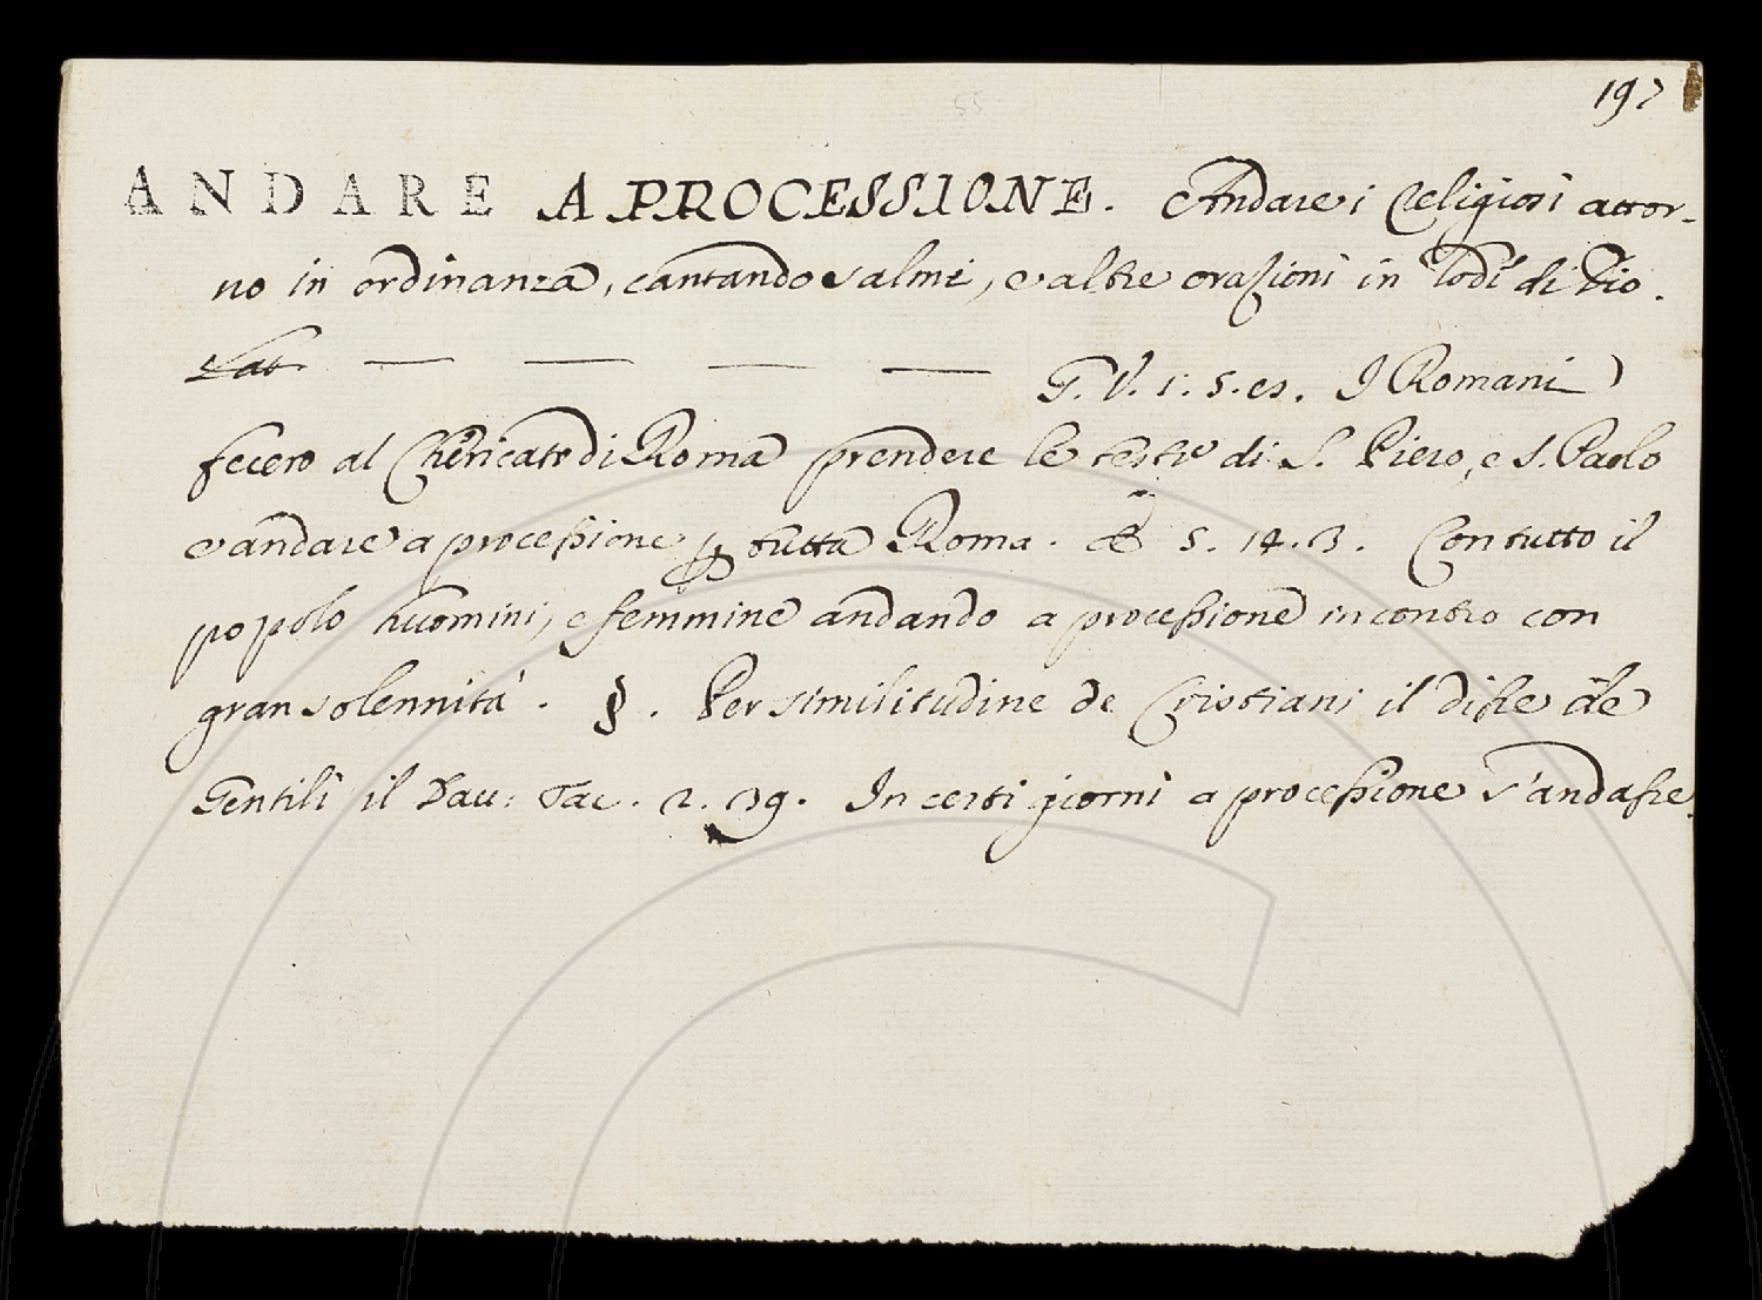 197
55
ANDARE A PROCESSIONE. Andare i Religiosi attor-
no in ordinanza, cantando salmi, e altre orazioni in lodi di Dio.
Lat — — — — G. V. 1. 5. es. I Romani
fecero al Chericato di Roma prendere le teste di S. Piero, e S. Paolo
e andare a processione p tutta Roma. E 5. 14. 3. Con tutto il
popolo huomini, e femmine andando a processione incontro con
gran solennità. §. Per similitudine de Cristiani il disse de
Gentili il Dau: Tac. 2. 39. In certi giorni a processione s'andasse